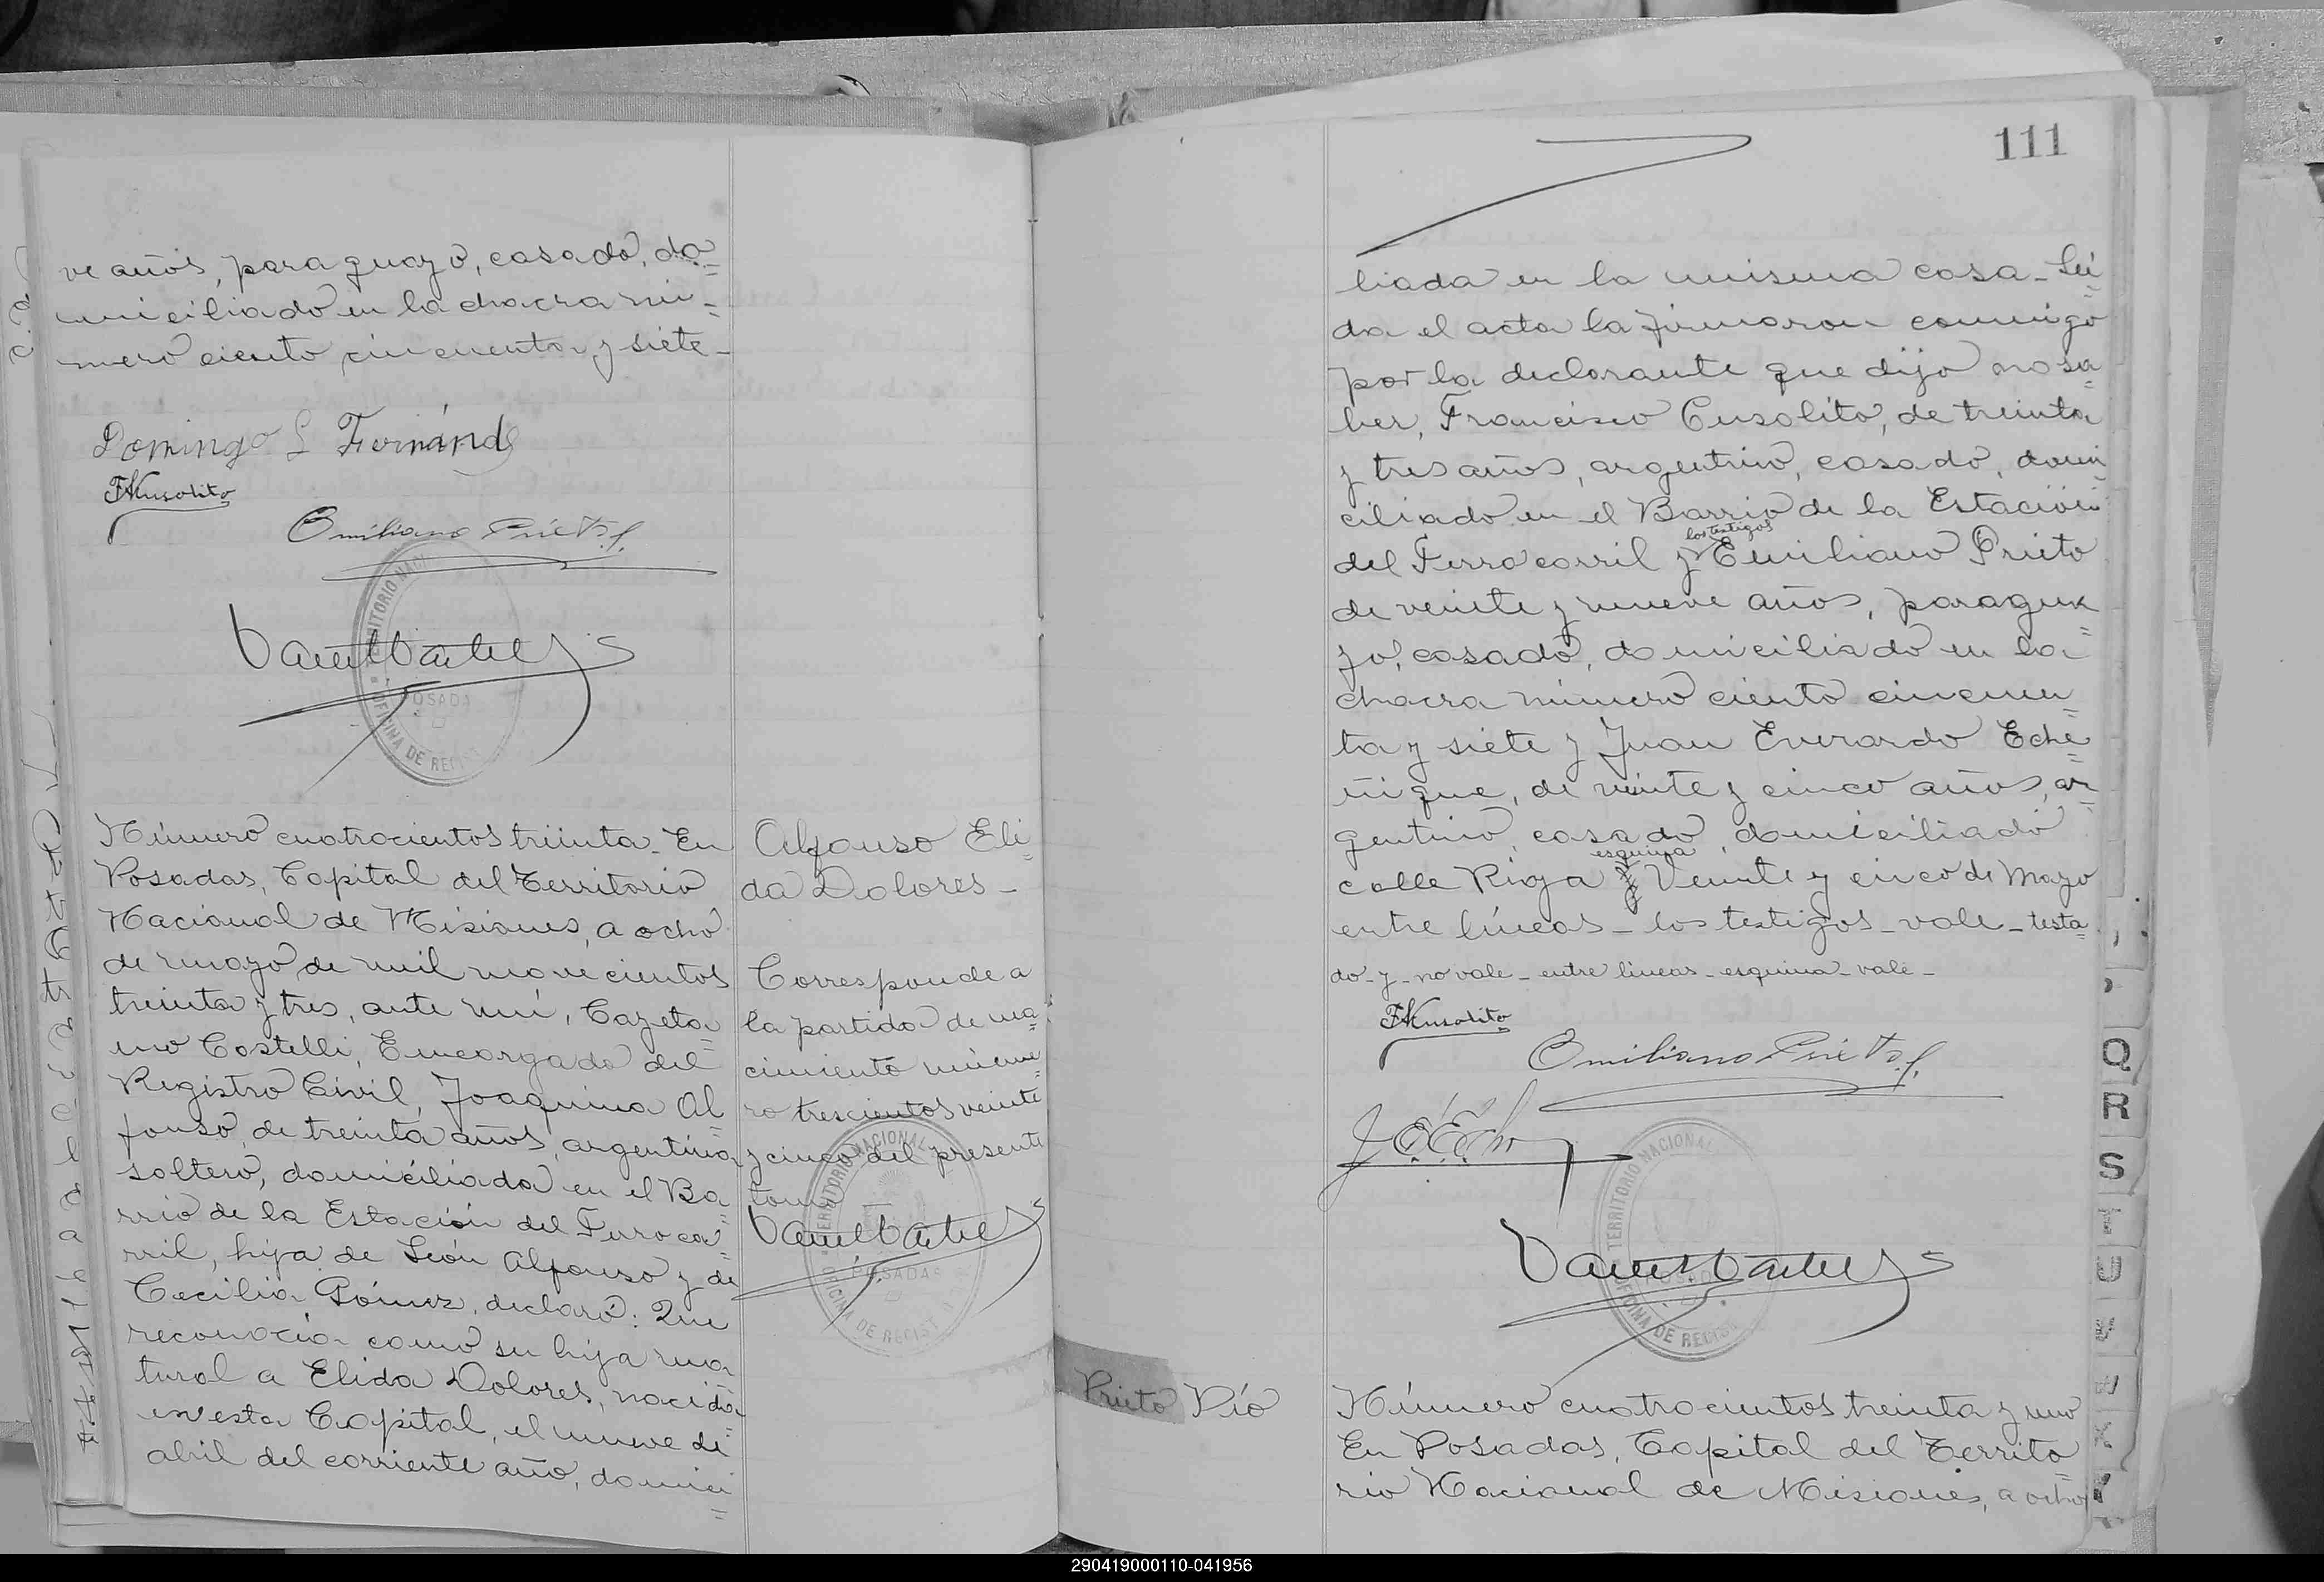 ve años, paraguayo, casado, do=
miciliado en la chacra nú=
mero ciento cincuenta y siete-
Domingo L Fernánd
Emiliano Prieto
TERRITORIO NACI
POSADA
OFICINA DE REGIS
Número cuatrocientos treinta- En
Posadas, Capital del Territorio
Nacional de Misiones, a ocho
de mayo de mil novecientos
treinta y tres, ante mí, Cayeta=
no Costelli, Encargado del
Registro Civil, Joaquina Al=
fonso, de treinta años, argentina
soltera, domiciliada en el Ba=
rrio de la Estación del Ferroca=
rril, hija de León Alfonso y de
Cecilia Gómez, declaró: Que
reconocía como su hija na=
tural a Elida Dolores, nacida
en esta Capital, el nueve de
abril del corriente año, domici=
Alfonso Eli=
da Dolores-
Corresponde a
la partida de na=
cimiento núme=
ro trescientos veinte
y cinco del presente
tomo
TERRITORIO NACIONAL
POSADAS
OFICINA DE REGIST
111
liada en la misma casa- Leí=
da el acta la firmaron conmigo
por la declarante que dijo no sa=
ber, Francisco Cusolito, de treinta
y tres años, argentino, casado, domi=
ciliado en el Barrio de la Estación
los testigos
del Ferrocarril y Emiliano Prieto
de veinte y nueve años, paragua=
yo, casado, domiciliado en la
chacra número ciento cincuen=
ta y siete y Juan Everardo Eche=
ñique, de veinte y cinco años, ar=
gentino, casado, domiciliado
esquina
calle Rioja y Veinte y cinco de Mayo
entre líneas- los testigos- vale- testa=
do- y- no vale- entre líneas- esquina- vale-
Emiliano Prieto
TERRITORIO NACIONAL
OFICINA DE REGIS
Prieto Pío
Número cuatrocientos treinta y uno
En Posadas, Capital del Territo=
rio Nacional de Misiones, a ocho
Q
R
S
T
U
V
W
X
Y
290419000110-041956